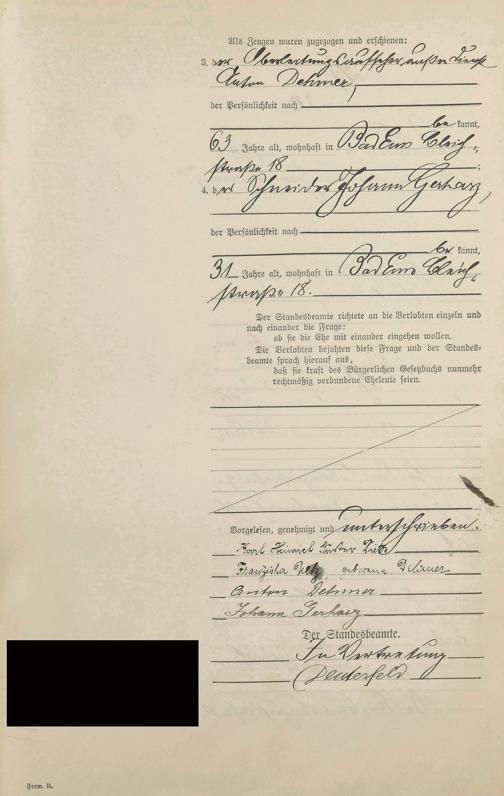 Als Zeugen waren zugezogen und erschienen:
3. der Oberleitungsaufseher außer Dienst
Anton Dehmer,
der Persönlichkeit nach
be kannt,
63 Jahre alt, wohnhaft in Bad Ems Bleich-
straße 18;
4. der Schneider Johann Gerharz,
der Persönlichkeit nach
be kannt,
31 Jahre alt, wohnhaft in Bad Ems Bleich-
straße 18.
Der Standesbeamte richtete an die Verlobten einzeln und
nach einander die Frage:
ob sie die Ehe mit einander eingehen wollen.
Die Verlobten bejahten diese Frage und der Standes-
beamte sprach hierauf aus,
daß sie kraft des Bürgerlichen Gesetzbuchs nunmehr
rechtmäßig verbundene Eheleute seien.
Vorgelesen, genehmigt und unterschrieben.
Karl Heinrich
Franziska geborene Dehmer
Anton Dehmer
Johann Gerharz
Der Standesbeamte.
In Vertretung
Form. B.